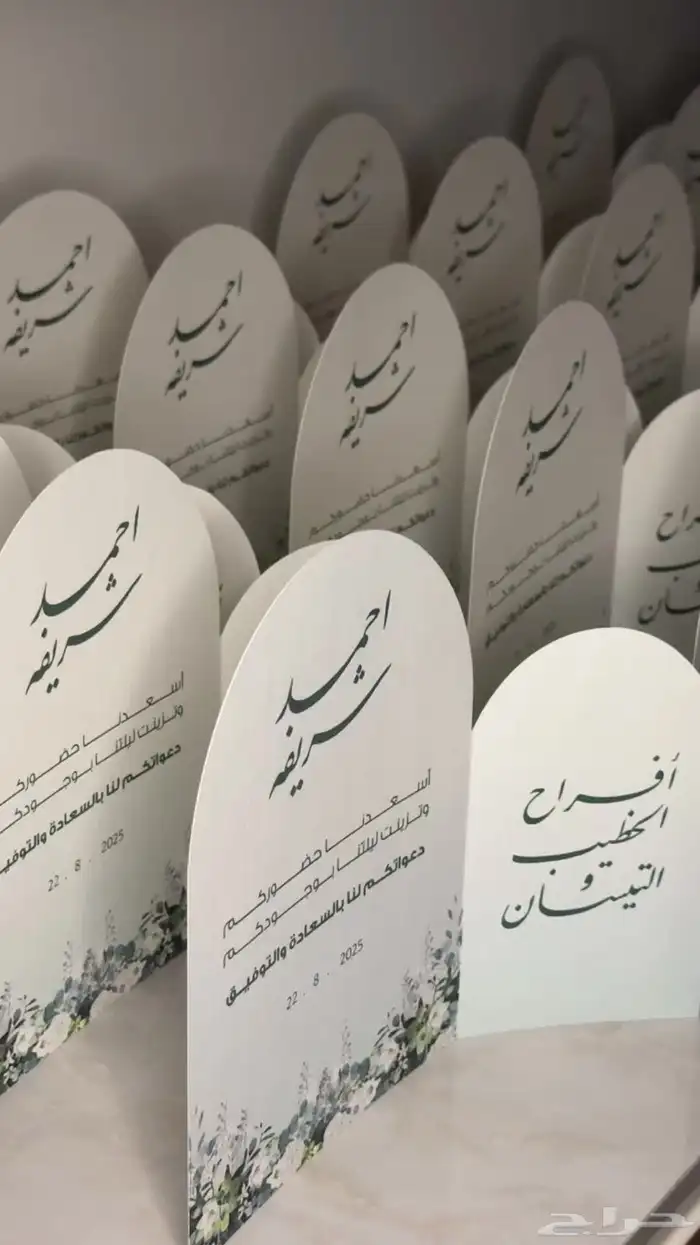 احمد
شريفه
أسعدنا حضوركم
وتزينت ليلتنا بوجودكم
دعواتكم لنا بالسعادة والتوفيق
22 . 8 . 2025
أفراح
الخطيب
و
التيسان
حراج